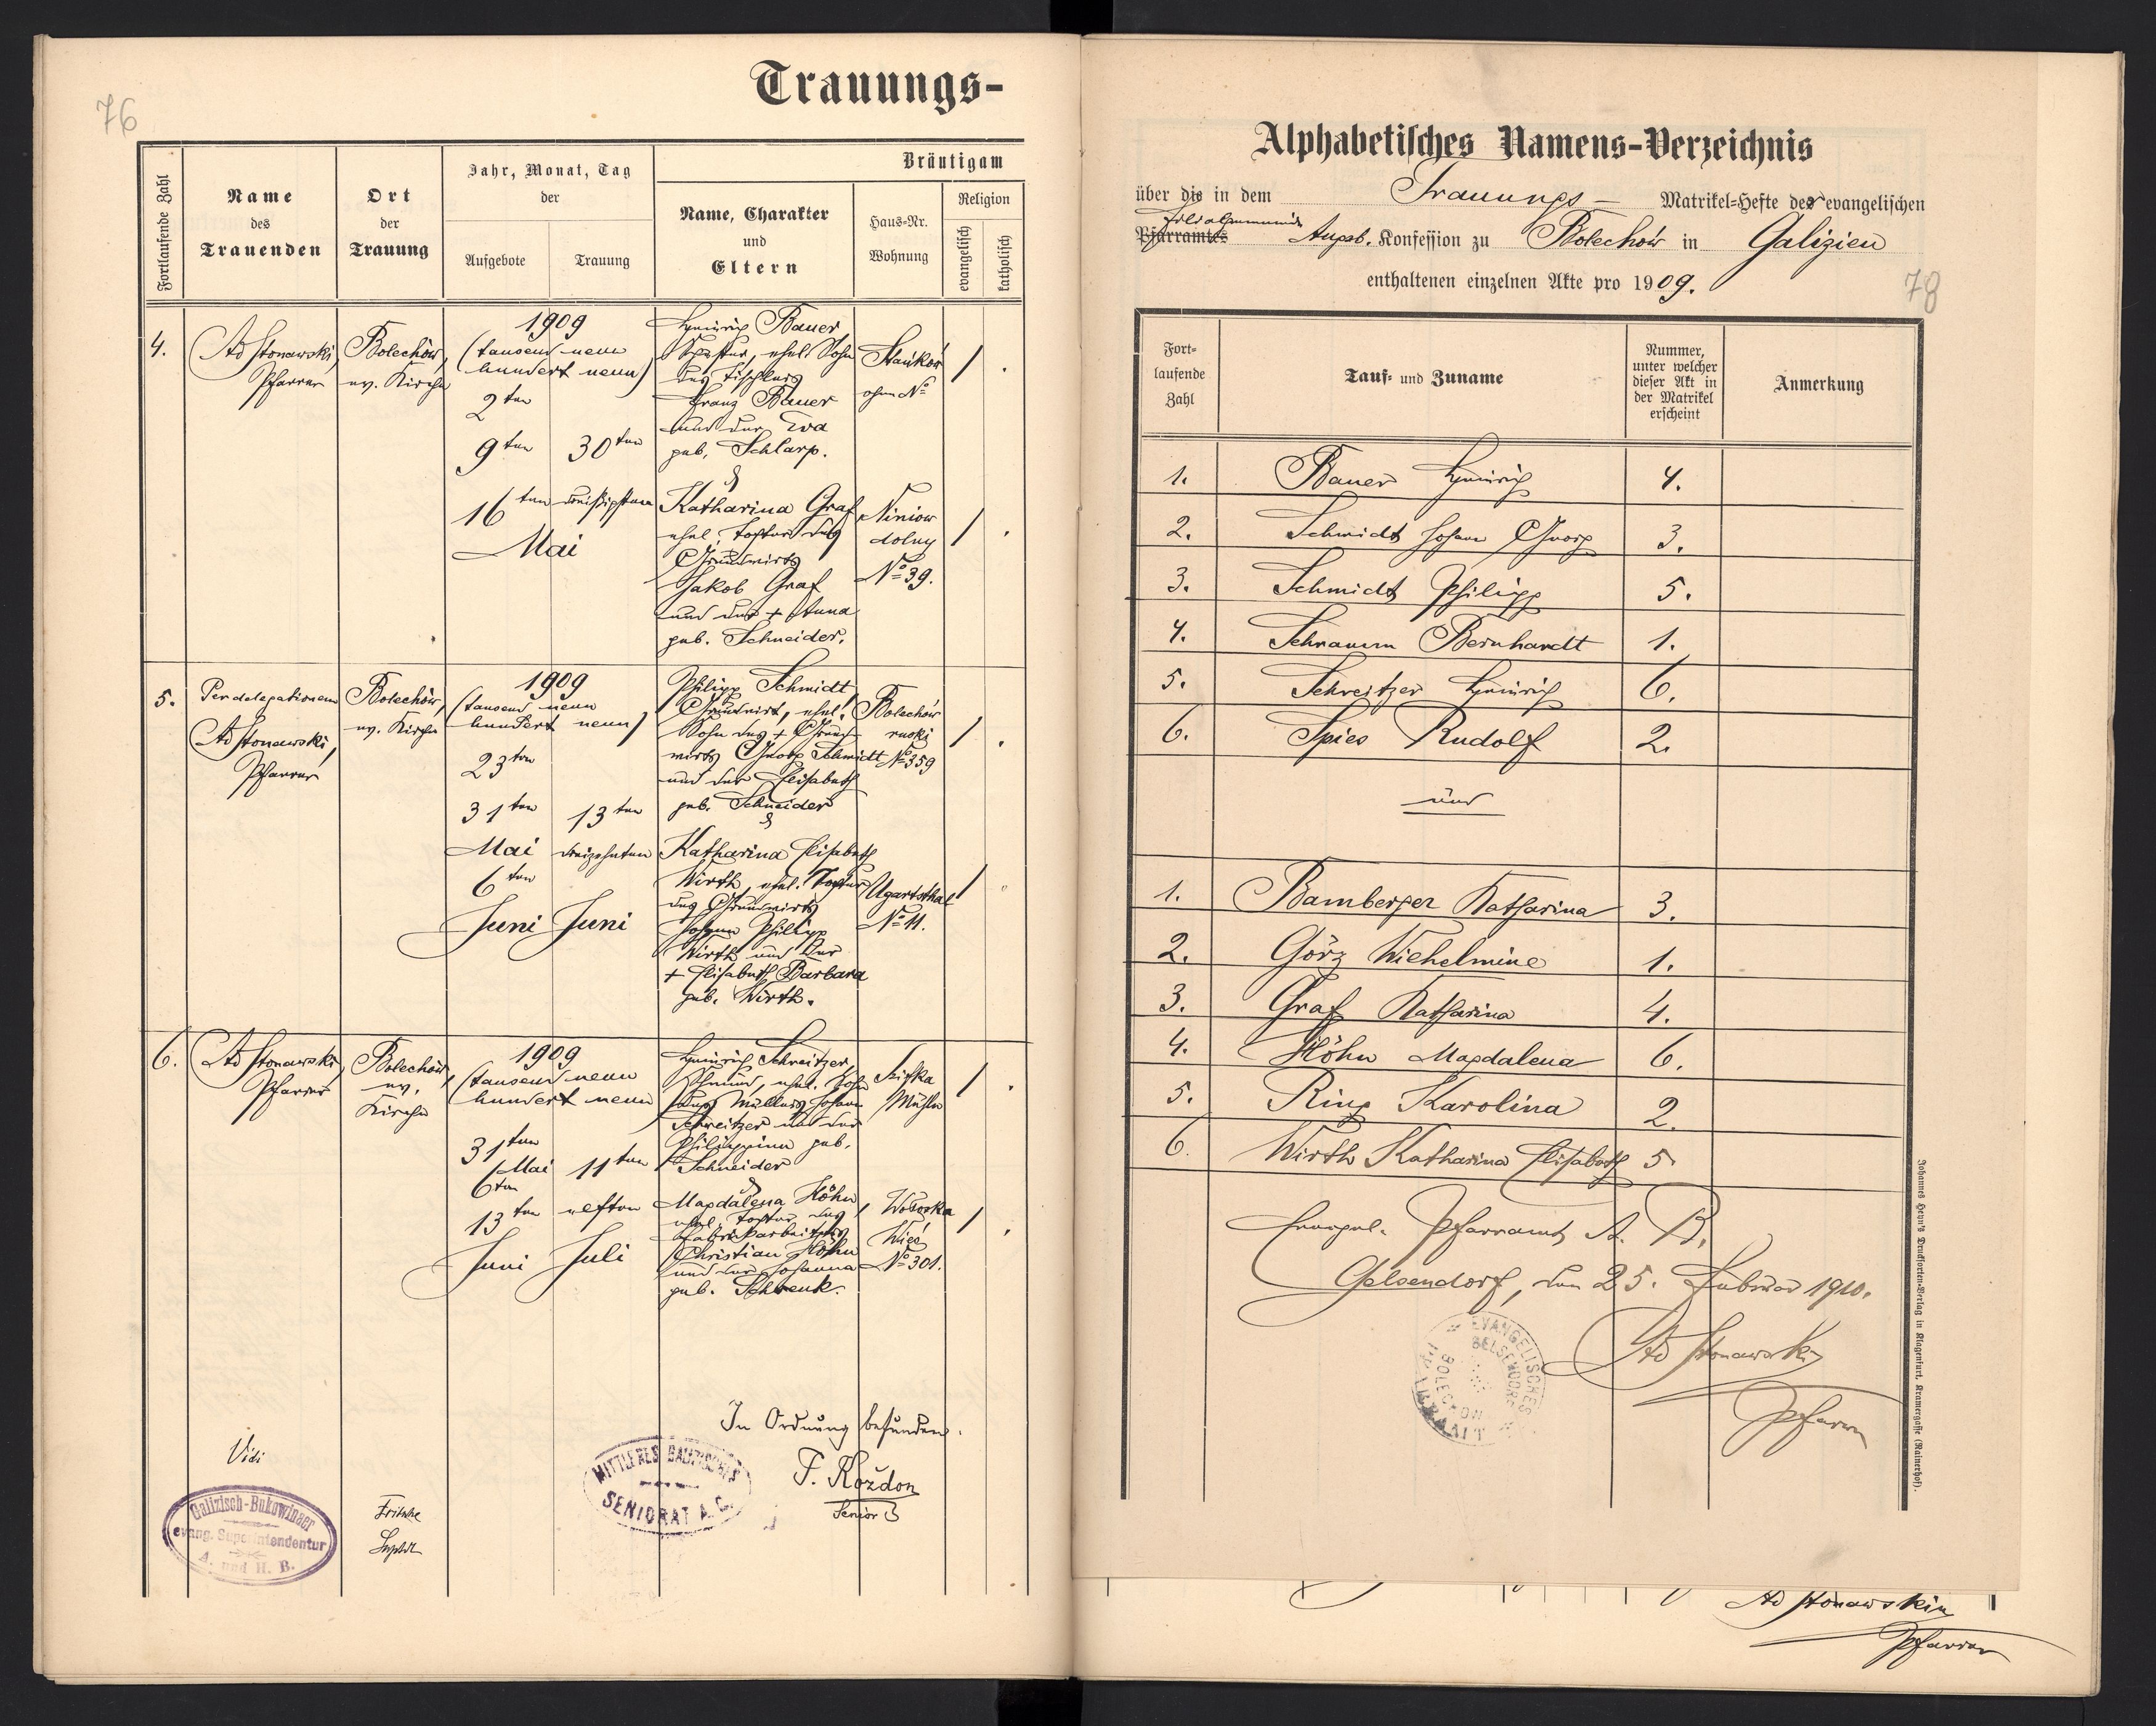 76
Trauungs-
Fortlaufende Zahl
Name
des
Trauenden
Ort
der
Trauung
Jahr, Monat, Tag
der
Aufgebote
Trauung
Bräutigam
Name, Charakter
und
Eltern
Haus-Nr.
Wohnung
Religion
evangelisch
katholisch
4.
Ad Stonawski,
Pfarrer
Bolechów,
ev. Kirche
1909
(tausend neun
hundert neun)
2ten
9ten 30ten
16ten dreißigsten
Mai
Heinrich Bauer
ehel. Sohn
des Tischlers
Franz Bauer
und der Eva
geb. Schlarp.
&
Katharina Graf
ehel. Tochter des
Grundwirts
Jakob Graf
und der + Anna
geb. Schneider.
Stańków
ohne No
Niniow
dolny
No 39.
5.
Per delegationem
Ad Stonawski,
Pfarrer
Bolechów,
ev. Kirche
1909
(tausend neun
hundert neun)
23ten
31ten 13ten
Mai dreizehnten
6ten
Juni Juni
Philipp Schmidt
Grundwirt, ehel.
Sohn des + Grund-
wirts Georg Schmidt
und der Elisabeth
geb. Schneider
&
Katharina Elisabeth
Wirth, ehel. Tochter
des Grundwirts
Johann Philipp
Wirth und der
+ Elisabeth Barbara
geb. Wirth.
Bolechów
ruski
No 359
Ugartsthal
No 11.
6.
Ad Stonawski,
Pfarrer
Bolechów,
ev.
Kirche
1909
(tausend neun
hundert neun
31ten
Mai 11ten
6ten
13ten elften
Juni Juli
Heinrich Schreitzer,
Schmied, ehel. Sohn
des Müllers Johann
Schreitzer und der
Philippine geb.
Schneider
&
Magdalena Höhn,
ehel. Tochter des
Fabriksarbeiters
Christian Höhn
und der Johanna
geb. Schwenk.
Mühle
Wołoska
Wieś
No 301.
In Ordnung befunden.
F. Kożdon
Senior
MITTLERES GALIZISCHES
SENIORAT A. C.
Vidi
Galizisch-Bukowinaer
evang. Superintendentur
A. und H. B.
Fritsche
Supdt
Alphabetisches Namens-Verzeichnis
über die in dem Trauungs- Matrikel-Hefte der evangelischen
Filialgemeinde
Pfarramtes Augsb. Konfession zu Bolechów in Galizien
enthaltenen einzelnen Akte pro 1909.
78
Fort-
laufende
Zahl
Tauf- und Zuname
Nummer,
unter welcher
dieser Akt in
der Matrikel
erscheint
Anmerkung
1. Bauer Heinrich 4.
2. Schmidt Johann Georg 3.
3. Schmidt Philipp 5.
4. Schramm Bernhardt 1.
5. Schreitzer Heinrich 6.
6. Spies Rudolf 2.
und
1. Bamberger Katharina 3.
2. Görz Wilhelmine 1.
3. Graf Katharina 4.
4. Höhn Magdalena 6.
5. Ring Karolina 2.
6. Wirth Katharina Elisabeth 5.
Evangel. Pfarramt A. B.
Gelsendorf, den 25. Februar 1910.
Ad Stonawski
Pfarrer
EVANGELISCHES
GELSENDORF
BOLECHOW
PFARRAMT
Johannes Heyn's Drucksorten-Verlag in Klagenfurt, Kramergasse (Rainerhof).
Ad Stonawski
Pfarrer